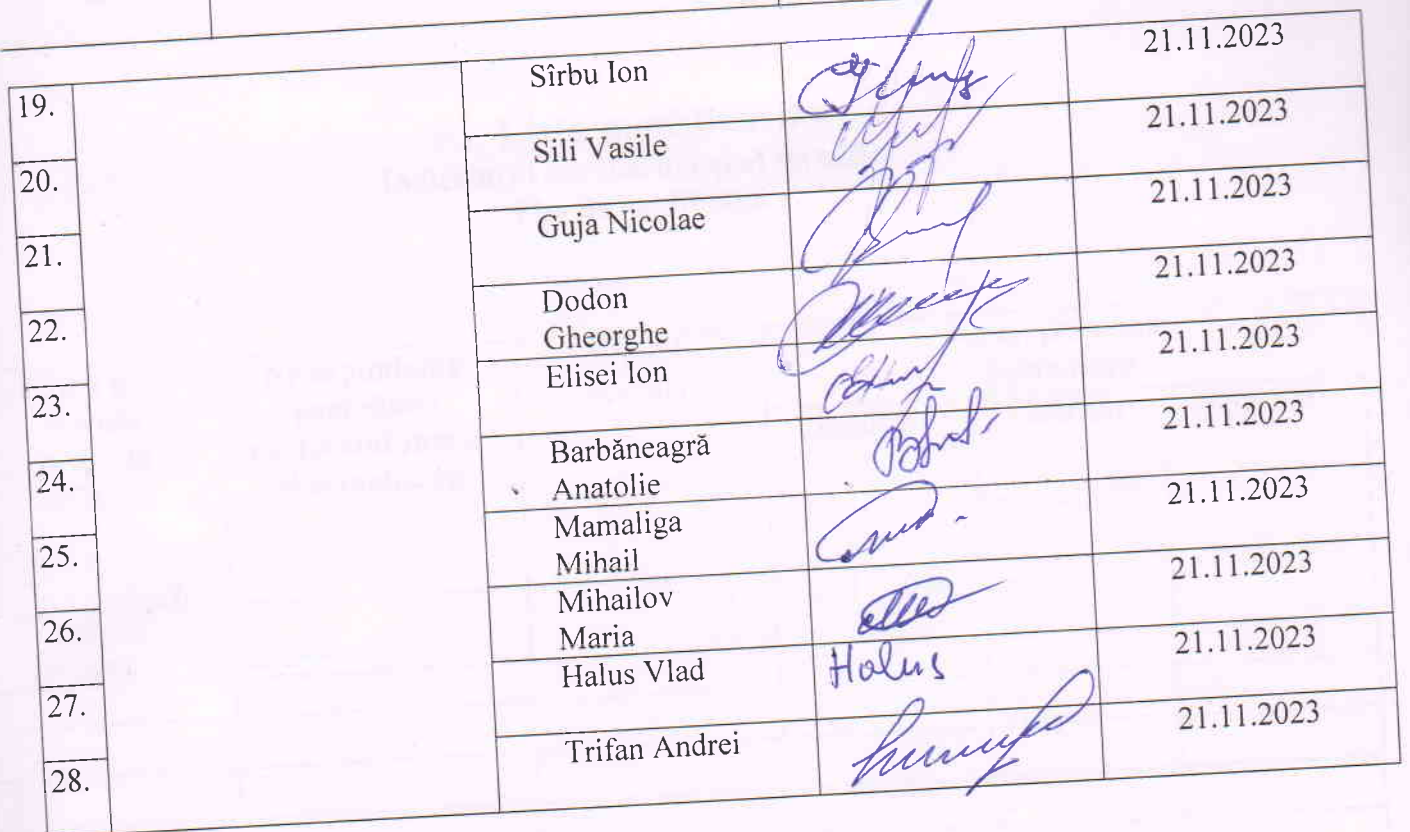 19. Sîrbu Ion 21.11.2023
20. Sili Vasile 21.11.2023
21. Guja Nicolae 21.11.2023
22. Dodon
Gheorghe 21.11.2023
23. Elisei Ion 21.11.2023
24. Barbăneagră
Anatolie 21.11.2023
25. Mamaliga
Mihail 21.11.2023
26. Mihailov
Maria 21.11.2023
27. Halus Vlad Halus 21.11.2023
28. Trifan Andrei 21.11.2023